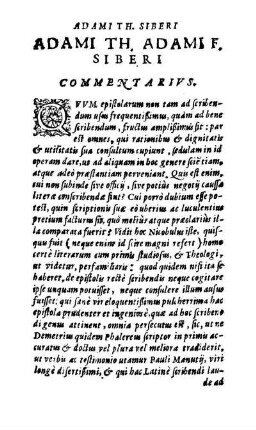 ADAMI TH. SIBERI
ADAMI TH. ADAMI F.
SIBERI
COMMENTARIVS.
QVVM epistolarum non tam ad scriben-
dum usus frequentissimus, quàm ad bene
scribendum, fructus amplissimus sit: par
est omnes, qui rationibus & dignitatis
& utilitatis suæ consultum cupiunt, sedulam in id
operam dare, ut ad aliquam in hoc genere sciētiam,
atque adeò præstantiam perveniant. Quis est enim,
cui non subinde sive officij, sive potius negotij caussa
literæ conscribendæ sint? Cui porrò dubium esse po-
test, quin scriptiuis suæ uberius ac luculentius
pretium facturus sit, quò melius atque præclarius il-
la comparata fuerit? Vidit hoc Nicobulus iste, quis-
quis fuit (neque enim id scire magni refert) homo
certè literarum cum primis studiosus, & Theologi,
ut videtur, perfamiliaris: quod quidem nisi ita se
haberet, de epistolis rectè scribendis neque cogitare
ipse unquam potuisset, neque consulere illum ausus
fuisset: qui sanè vir eloquentissimus pulcherrima hac
epistola prudenter et ingeniosè, quæ ad hoc scriben-
di genus attinent, omnia persecutus est, sic, ut ne
Demetrius quidem Phalereus scriptor in primis ac-
curatus & doctus vel plura vel meliora tradiderit,
ut verbis ac testimonio utamur Pauli Manutij, viri
longè disertissimi, & qui hac Latinè scribendi lau-
de ad